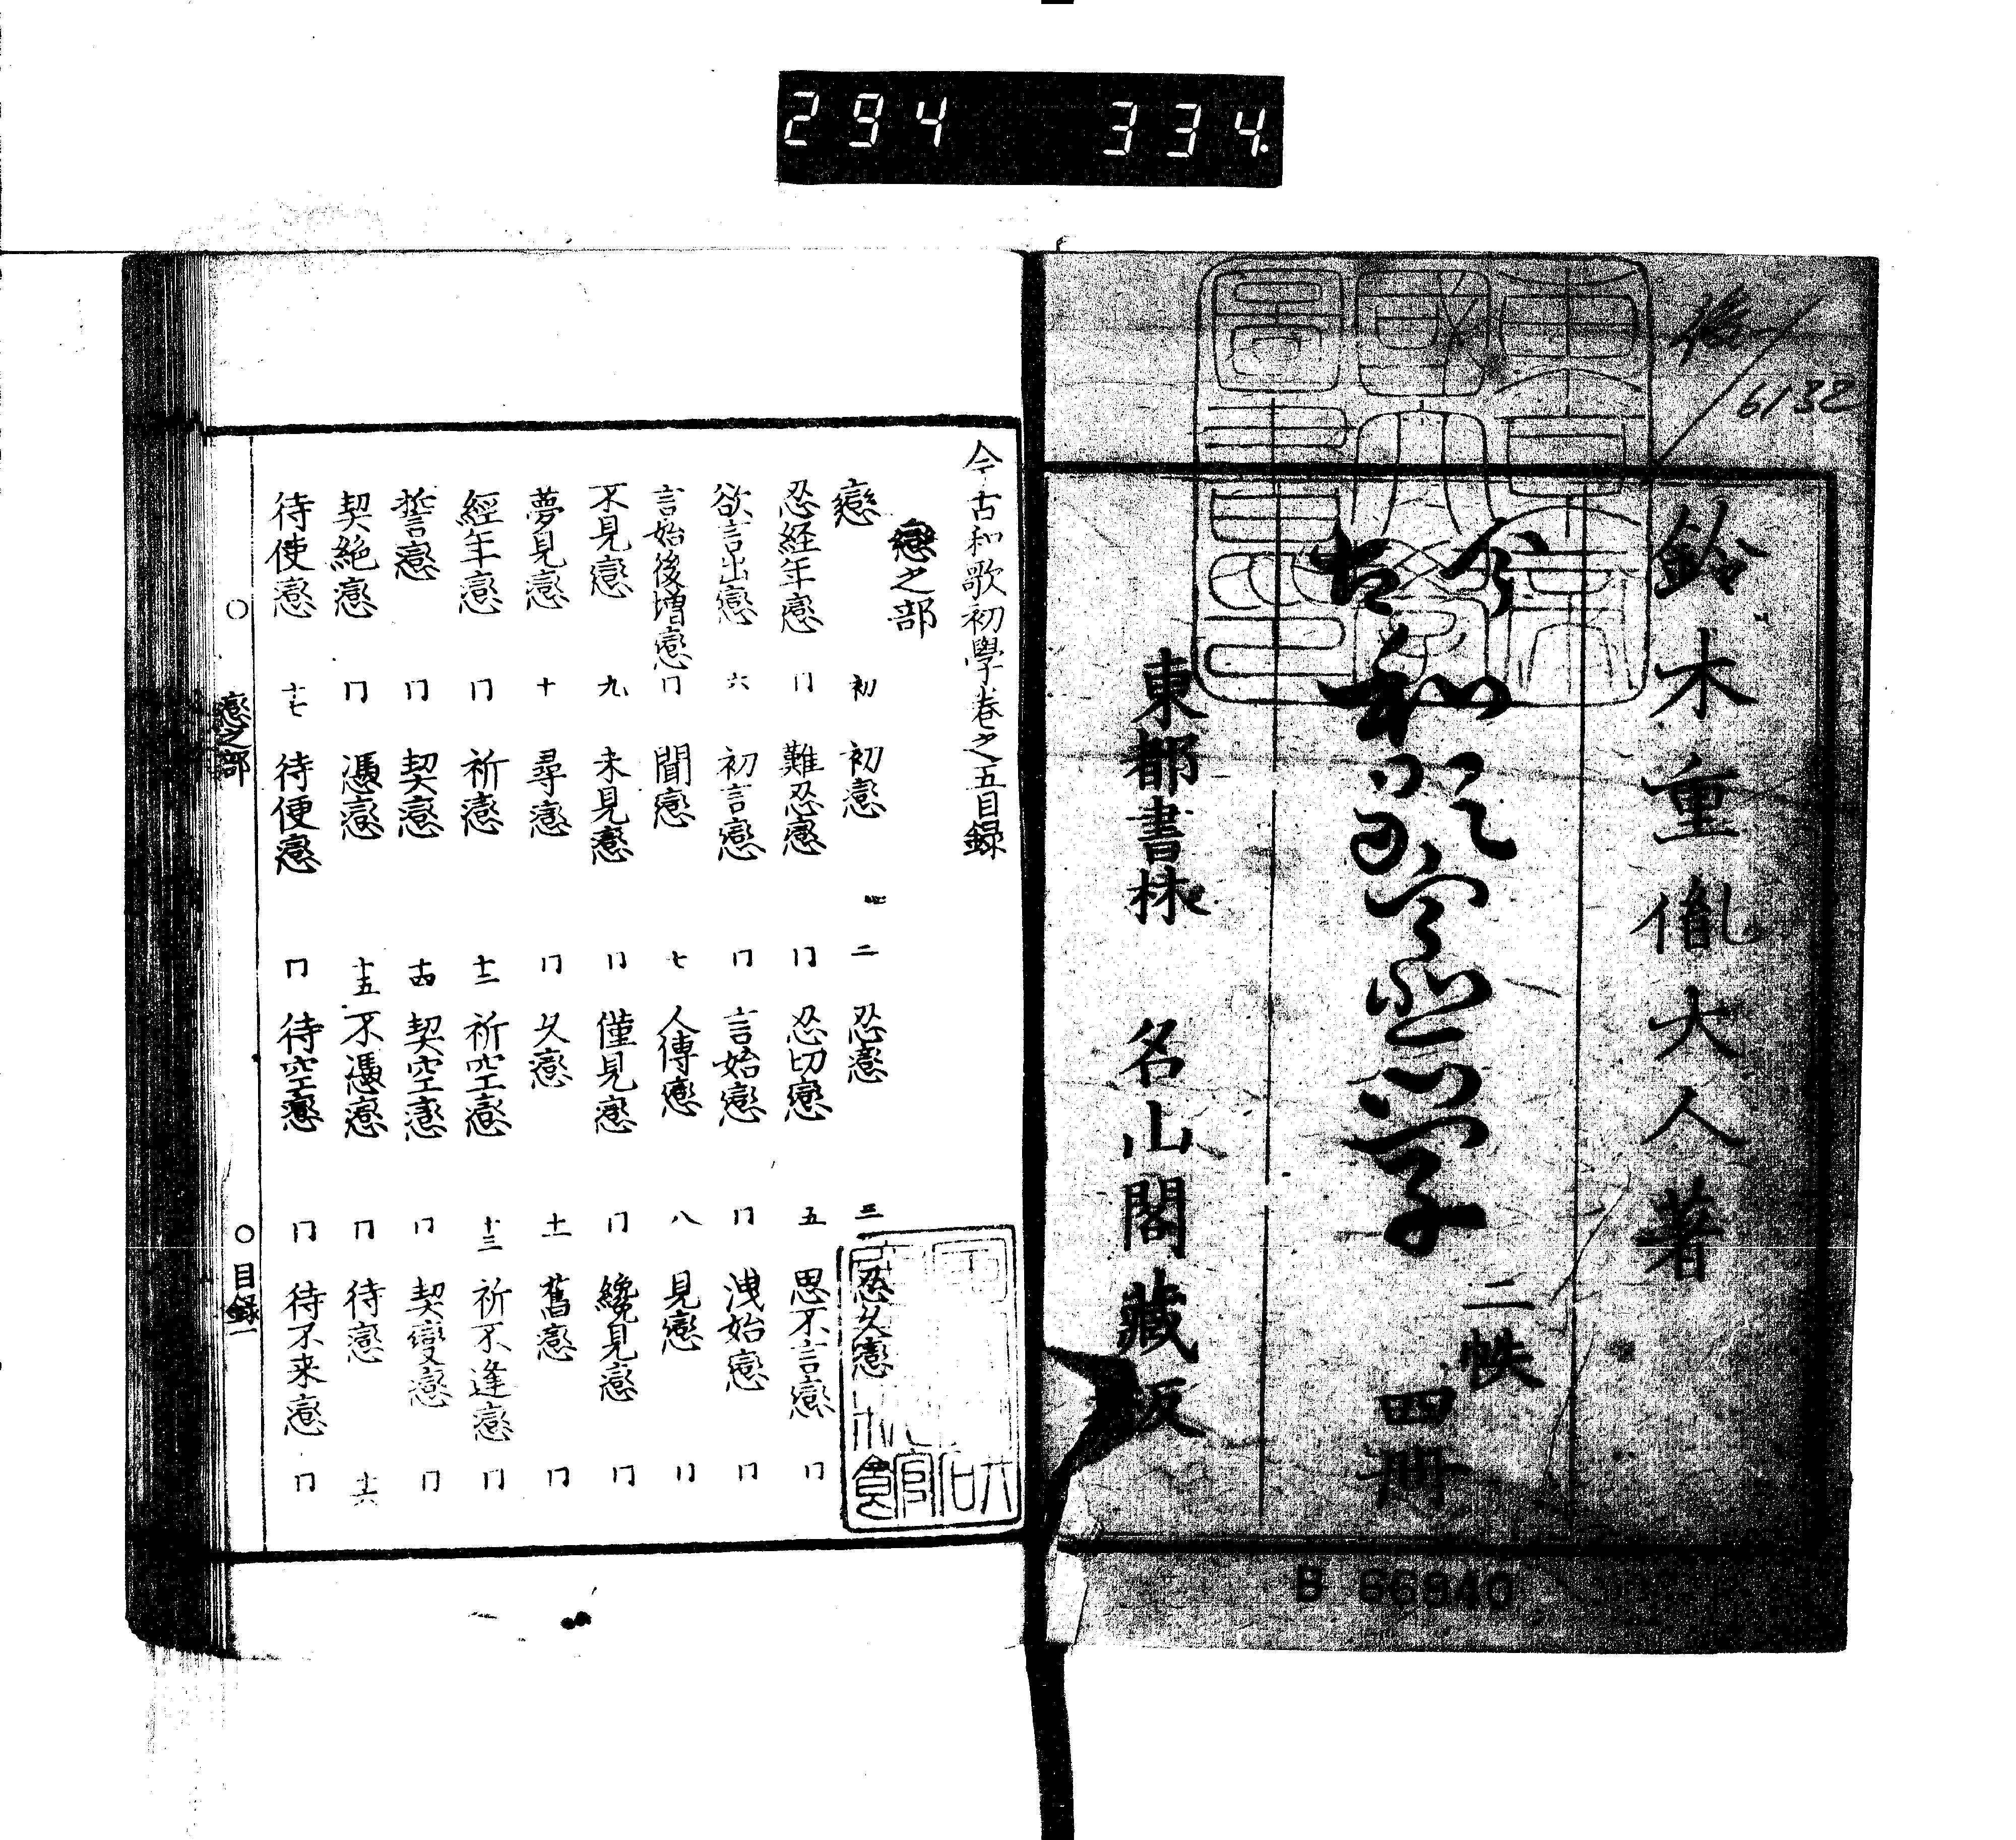 294 334.
6132
鈴木重胤大人著
今古和歌初学
二帙
四冊
東都書林 名山閣藏版
B 66940
今古和歌初學巻之五目録
戀之部
戀 初 初戀 二 忍戀 三 忍久戀 四
忍経年戀 冂 難忍戀 冂 忍切戀 五 思不言戀 冂
欲言出戀 六 初言戀 冂 言始戀 冂 洩始戀 冂
言始後増戀 冂 聞戀 七 人傳戀 八 見戀 冂
不見戀 九 未見戀 冂 僅見戀 冂 纔見戀 冂
夢見戀 十 尋戀 冂 久戀 十一 舊戀 冂
經年戀 冂 祈戀 十二 祈空戀 十三 祈不逢戀 冂
誓戀 冂 契戀 十四 契空戀 冂 契變戀 冂
契絶戀 冂 憑戀 十五 不憑戀 冂 待戀 十六
待使戀 十七 待便戀 冂 待空戀 冂 待不来戀 冂
○ 戀之部 ○ 目録一